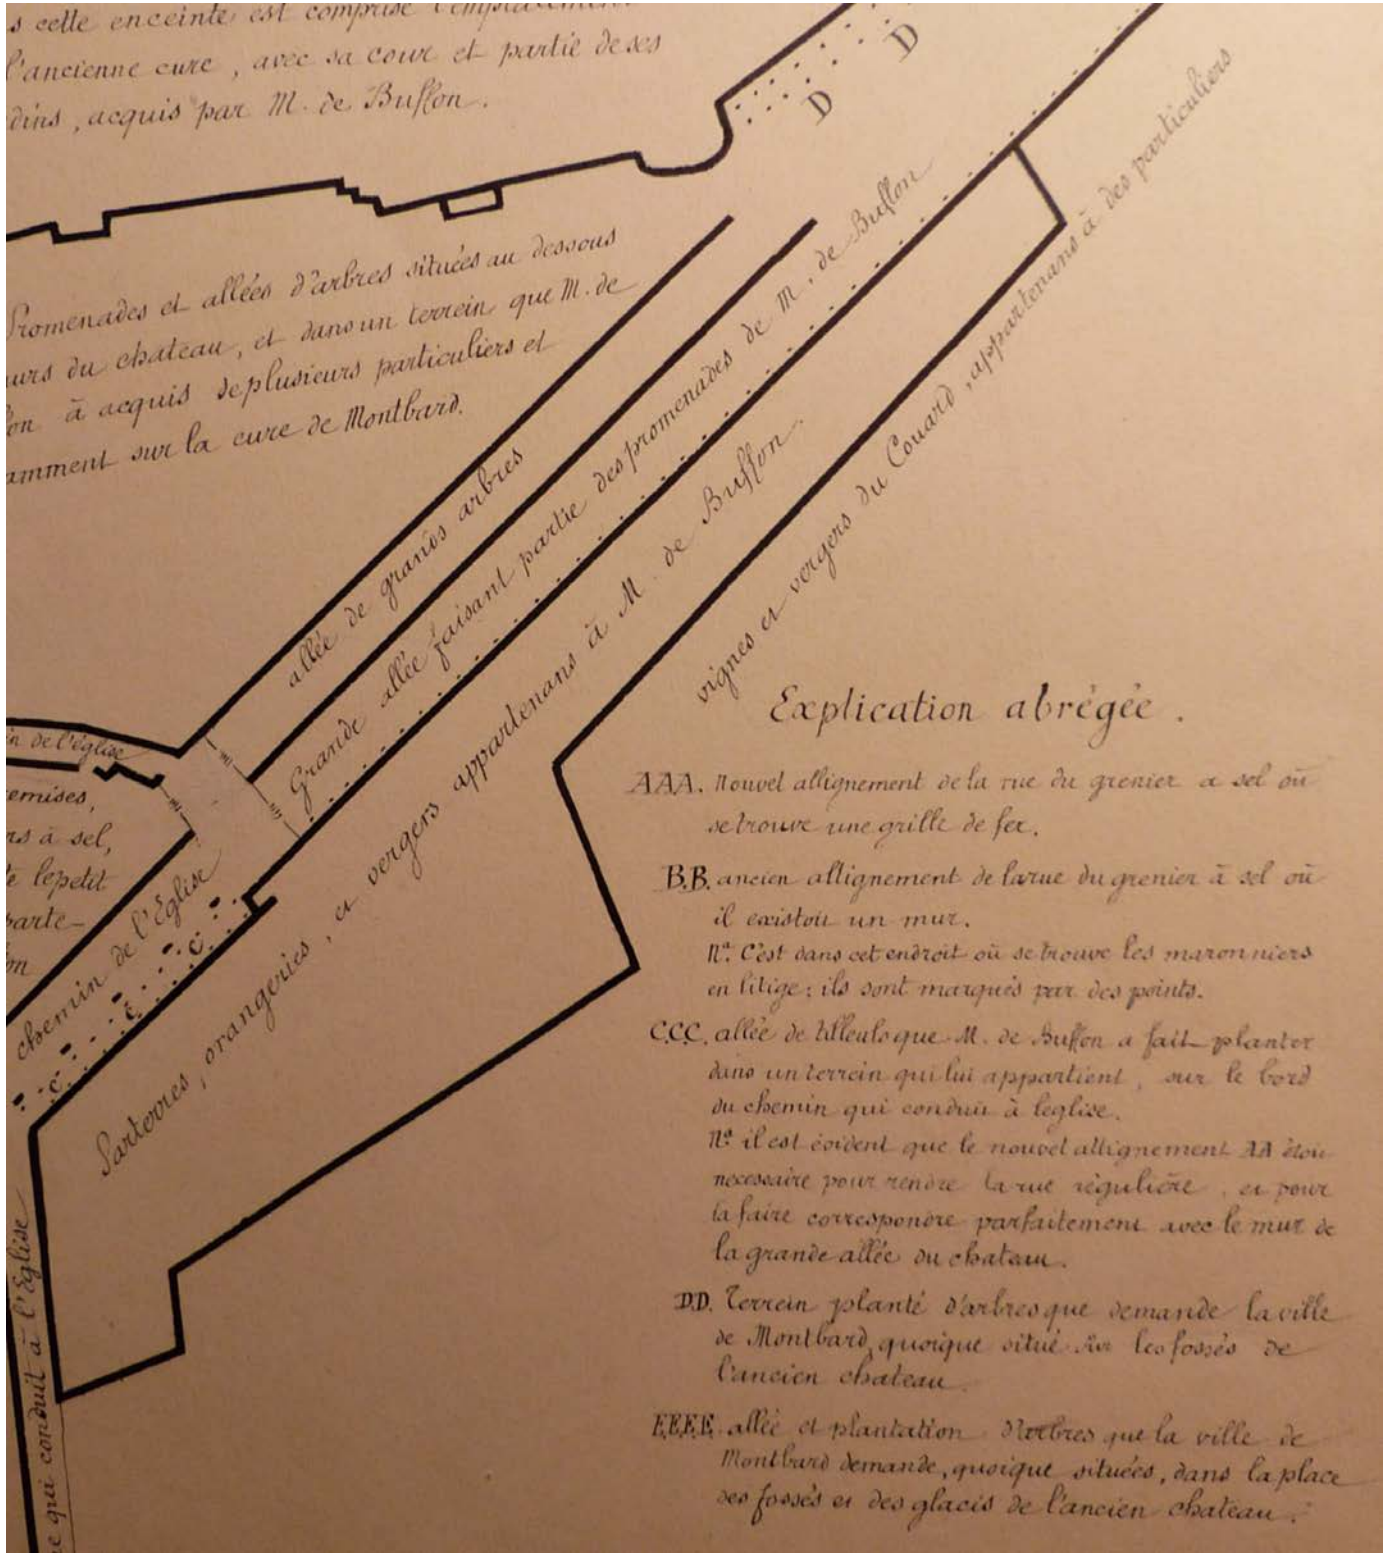 s cette enceinte est comprise l'emplacement
l'ancienne cure, avec sa cour et partie de ses
dins, acquis par M. de Buffon.
D
D
Promenades et allées d'arbres situées au dessous
urs du chateau, et dans un terrein que M. de
on à acquis de plusieurs particuliers et
amment sur la cure de Montbard.
allée de grands arbres
Grande allée faisant partie des promenades de M. de Buffon
Parterres, orangeries, et vergers appartenans à M. de Buffon.
vignes et vergers du Couard, appartenans à des particuliers
in de l'église
emises,
rs à sel,
te le petit
parte-
on
chemin de l'Eglise
C
C
C
e qui conduit à l'Eglise
Explication abrégée.
AAA. Nouvel allignement de la rue du grenier a sel où
se trouve une grille de fer.
B.B. ancien allignement de la rue du grenier à sel où
il existoit un mur.
Nª. C'est dans cet endroit où se trouve les maronniers
en litige; ils sont marqués par des points.
C.C.C. allée de tilleuls que M. de Buffon a fait planter
dans un terrein qui lui appartient, sur le bord
du chemin qui conduit à leglise.
Nª il est évident que le nouvel allignement AA étoit
necessaire pour rendre la rue régulière, et pour
la faire correspondre parfaitement avec le mur de
la grande allée du chateau.
D.D. Terrein planté d'arbres que demande la ville
de Montbard, quoique situé sur les fossés de
l'ancien chateau.
E.E.E.E. allée et plantation d'arbres que la ville de
Montbard demande, quoique situées, dans la place
des fossés et des glacis de l'ancien chateau.